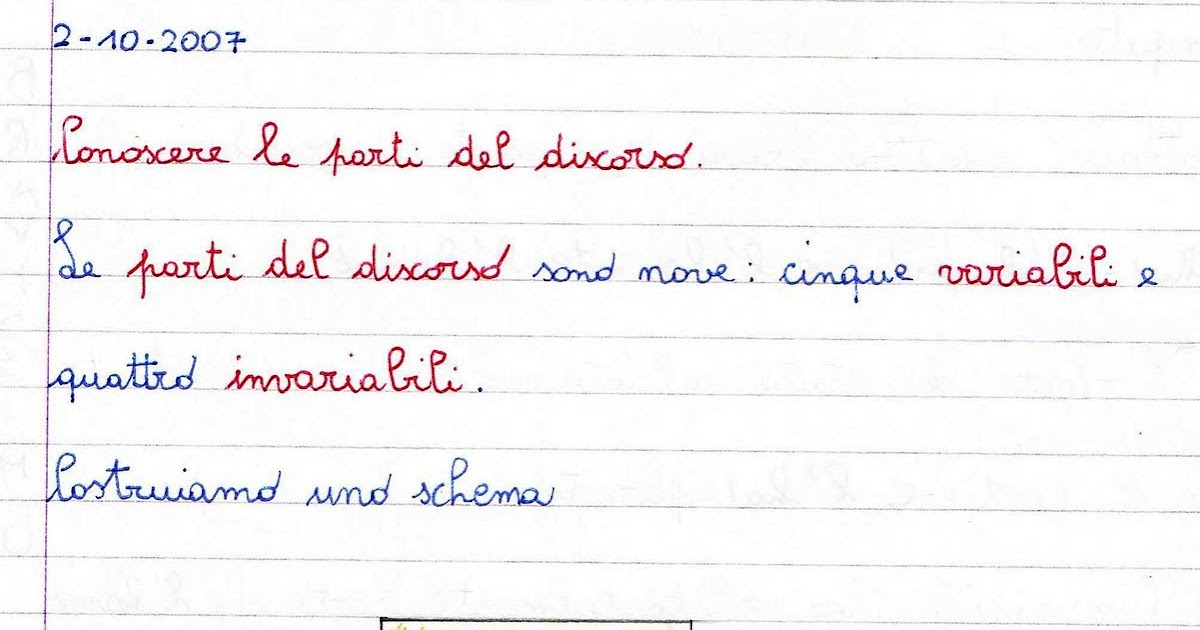 2-10-2007
Conoscere le parti del discorso.
Le parti del discorso sono nove: cinque variabili e
quattro invariabili.
Costruiamo uno schema